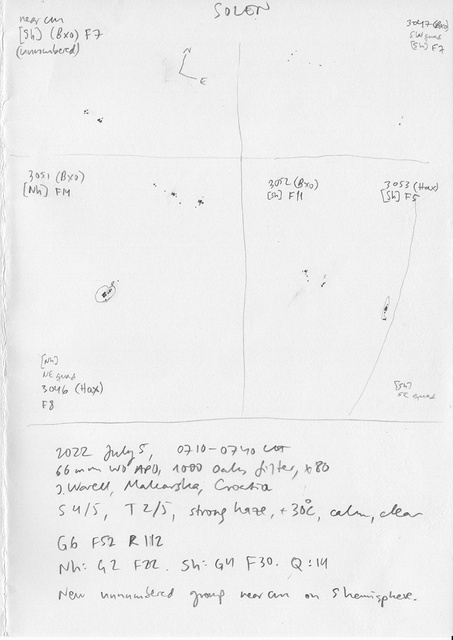 SOLEN
near cm
[Sh] (Bxo) F7
(unnumbered)
3047 (Bxo)
SW quad
[Sh] F7
N
E
3051 (Bxo)
[Nh] F14
3052 (Bxo)
[Sh] F11
3053 (Hax)
[Sh] F5
[Nh]
NE quad
3046 (Hax)
F8
[Sh]
SE quad
2022 July 5, 0710-0740 UT
66mm WO APO, 1000 Oaks filter, x80
J. Warell, Makarska, Croatia
S 4/5, T 2/5, strong haze, +30°C, calm, clear
G6 F52 R112
Nh: G2 F22. Sh: G4 F30. Q: 14
New unnumbered group near cm on S hemisphere.